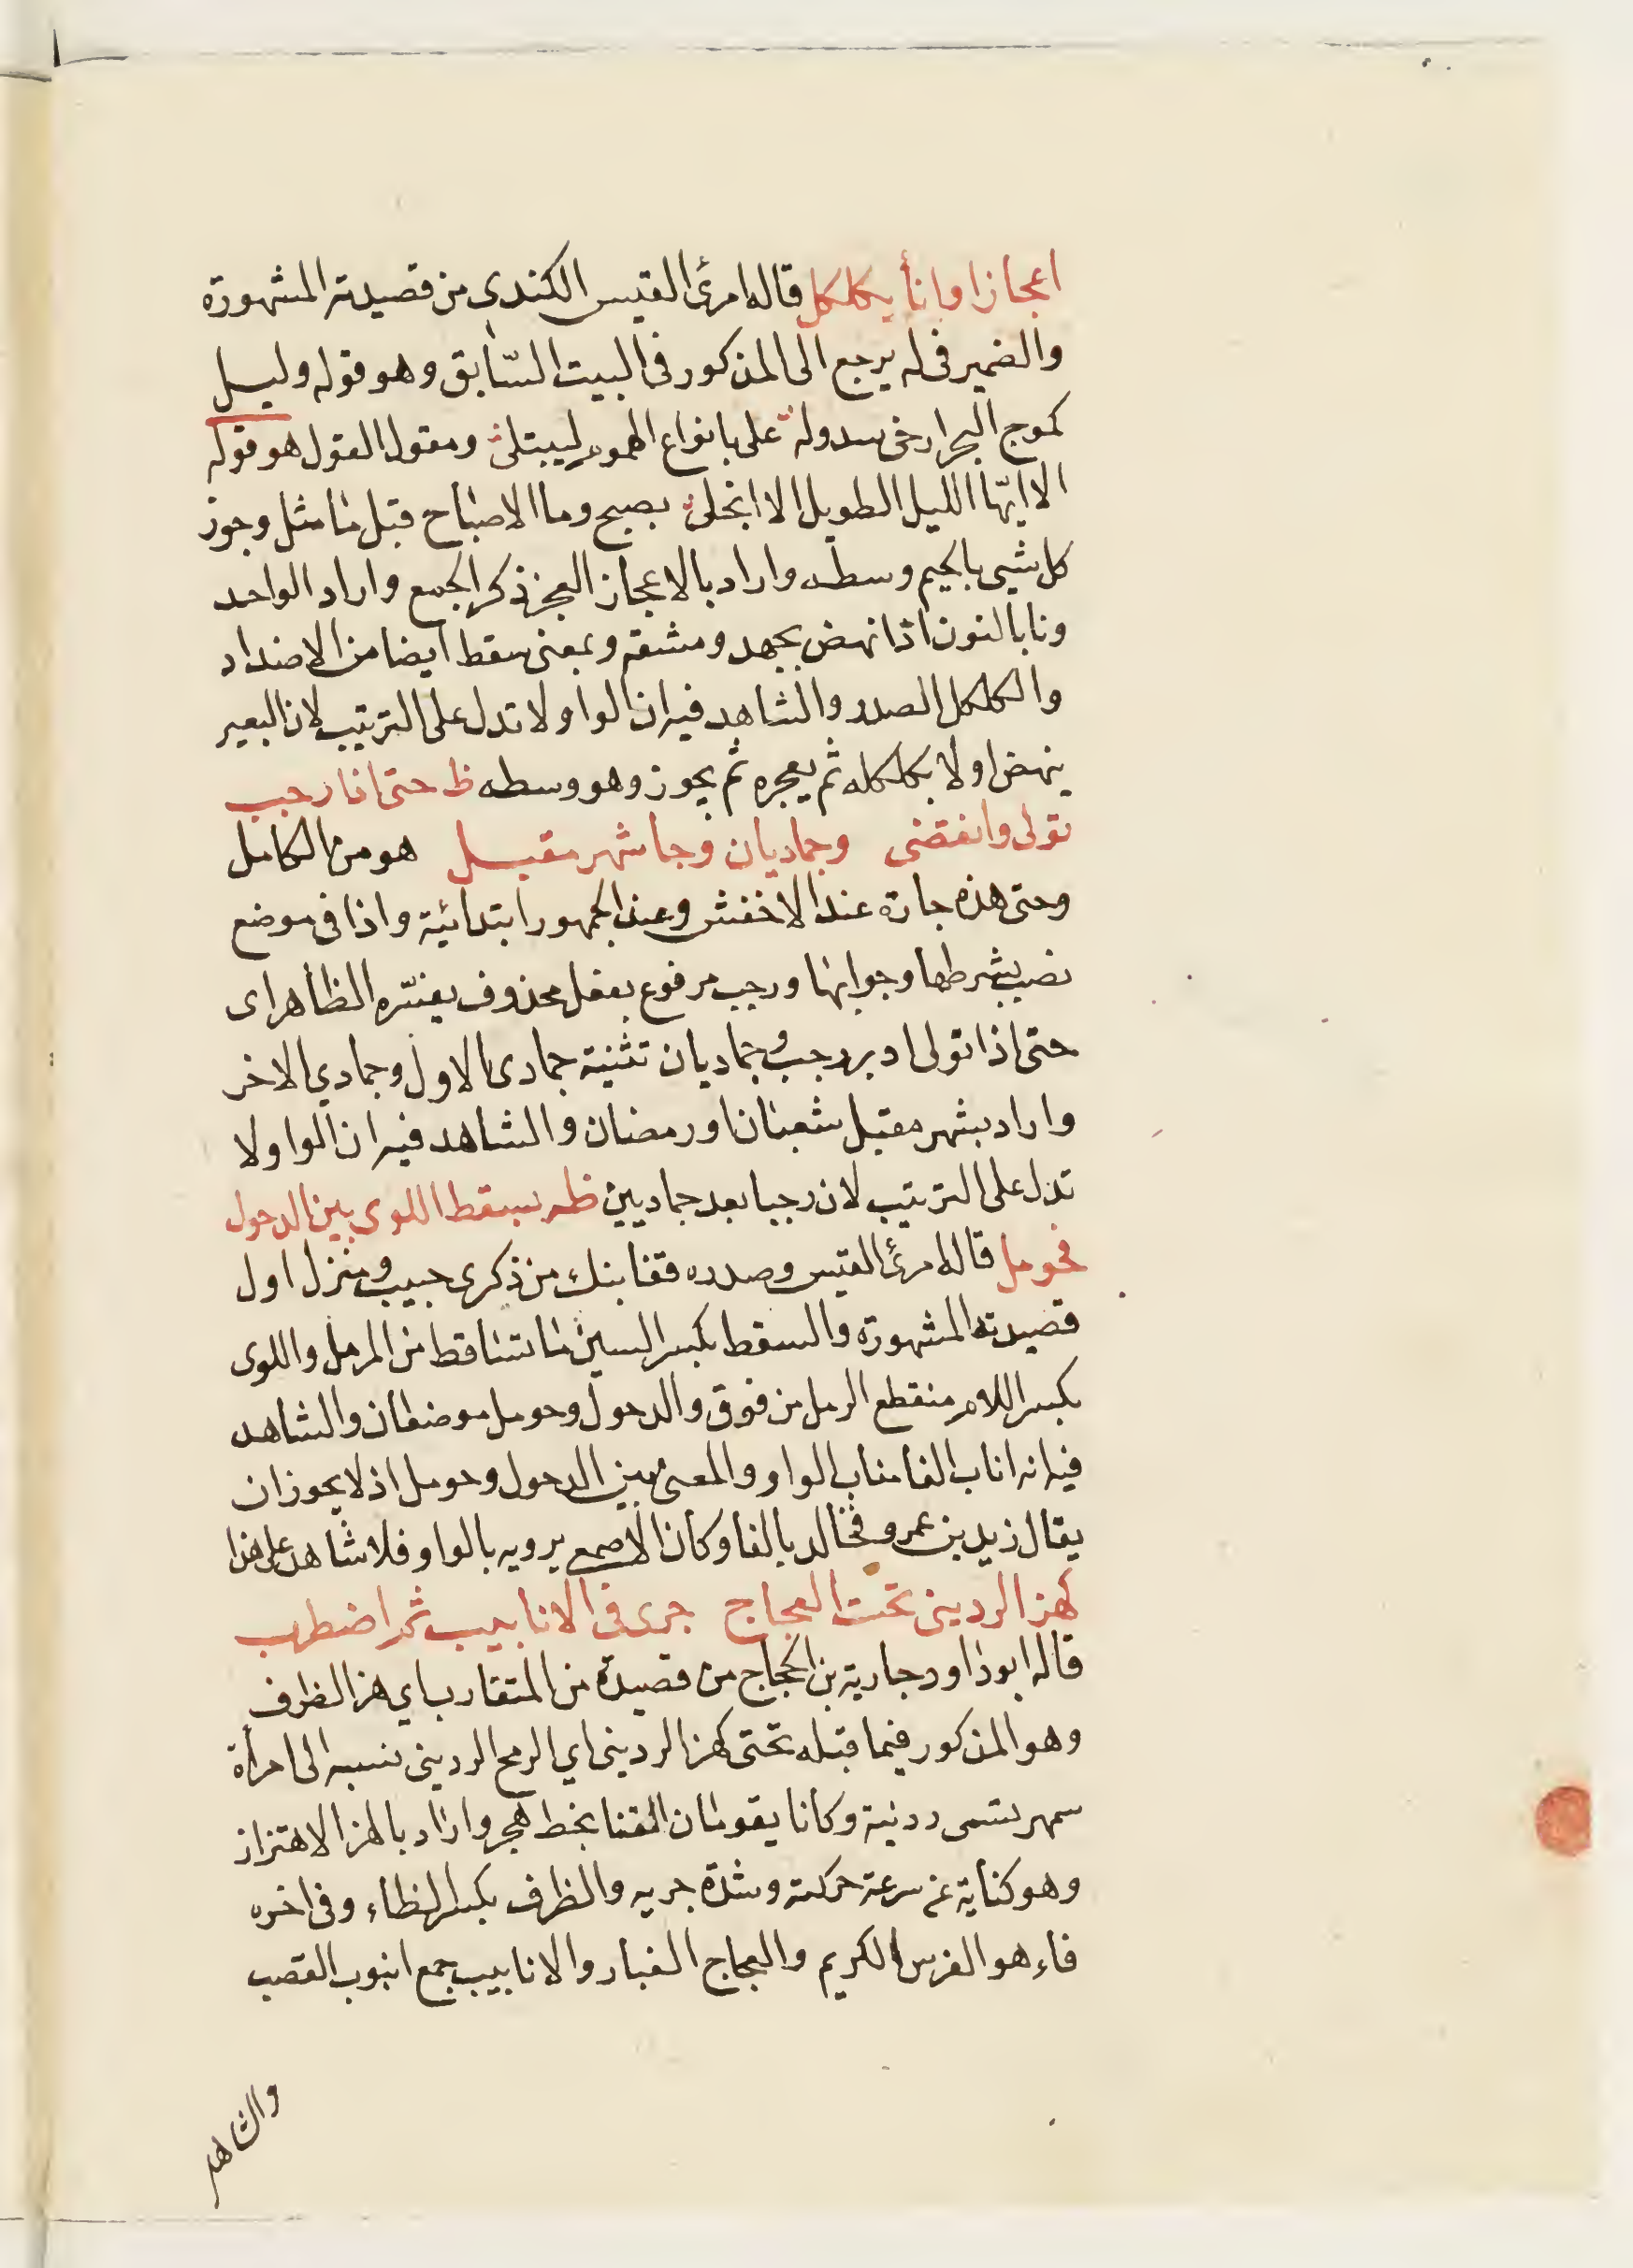 اعجازا وانأ بكلكل قاله امرئ القيس الكندى من قصيدته المشهورة
والضمير فى له يرجع الى المذكور فى البيت السّابق وهو قوله وليل
كموج البحر ارخى سدوله على بانواع الهموم ليبتلى ومقول القول هو قوله
الا ايّها الليل الطويل الا انجلى بصبح وما الاصباح قبل ما مثل وجوز
كل شيى بالجيم وسطه واراد بالاعجاز العجز ذكر الجمع واراد الواحد
ونا بالنون اذا نهض بجهد ومشقة وبمعنى سقط ايضا من الاضداد
والكلكل الصدر والشاهد فيه ان الواو لا تدل على الترتيب لان البعير
ينهض اولا بكلكله ثم يعجزه ثم بجوز وهو وسطه ظ حتى اذا رجب
تولى وانقضى وجماديان وجا شهر مقبل هو من الكامل
وحتى هذه جارة عند الاخفش وعند الجمهور ابتدائية واذا فى موضع
نصب بشرطها وجوابها ورجب مرفوع بفعل محذوف يفسّره الظاهر اى
حتى اذا تولى ادبر رجب وجماديان تثنية جمادى الاول وجمادي الاخر
واراد بشهر مقبل شعبان او رمضان والشاهد فيه ان الواو لا
تدل على الترتيب لان رجبا بعد جماديين ظه بسقط اللوى بين الدحول
فحومل قاله امرئ القيس وصدره قفا نبك من ذكرى حبيب ومنزل اول
قصيدته المشهورة والسقط بكسر السين ما تساقط من الرمل واللوى
بكسر اللام منقطع الرمل من فوق والدحول وحومل موضعان والشاهد
فيه انه اناب الفا مناب الواو والمعنى بين الدحول وحومل اذ لا يجوز ان
يقال زيد بن عمرو فخالد بالفا وكان الاصمع يرويه بالواو فلا شاهد على هذا
كهز الردينى تحت العجاج جرى فى الانابيب ثم اضطرب
قاله ابو داود جارية بن الحجاج من قصيدة من المتقارب اي هز الظرف
وهو المذكور فيما قبله تحتى كهز الردينى اي الرمح الردينى نسبه الى امرأة
سمهر تسمى ردنية وكانا يقومان القنا بخط هجر واراد بالهز الاهتزاز
وهو كناية عن سرعة حركته وشدة جريه والظرف بكسر الظاء وفى اخره
فاء هو الفرس الكريم والعجاج الغبار والانابيب جمع انبوب القصب
والشاهد